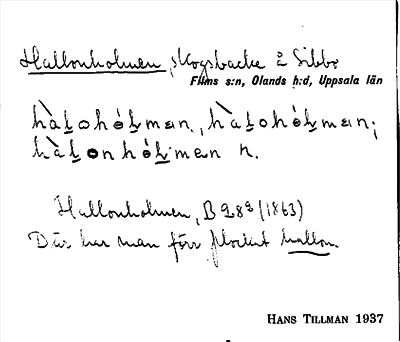 Hallonholmen, skogsbacke å Sibbo
Films s:n, Olands h:d, Uppsala län
hàlohólmen, hàlohólmen,
hàlonhólmen n.
Hallonholmen, B 28ª (1863)
Där har man förr plockat hallon.
HANS TILLMAN 1937